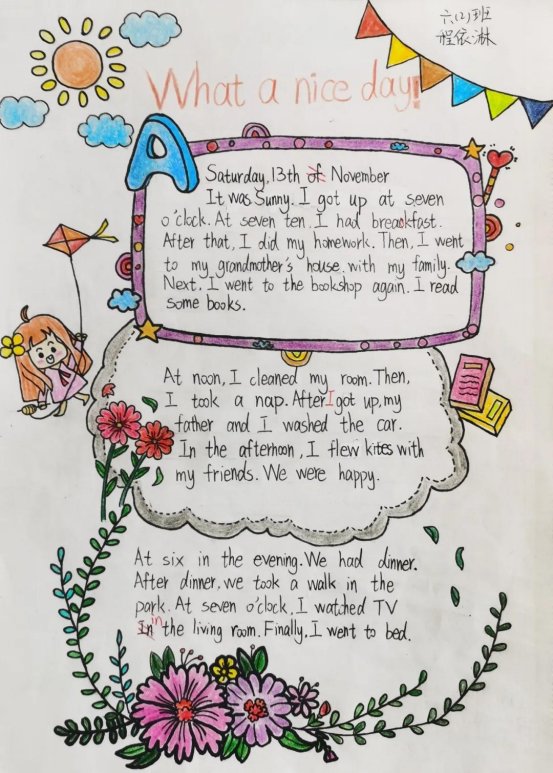 六(2)班
程依淋
What a nice day!
A
Saturday, 13th of November
It was Sunny. I got up at seven
o'clock. At seven ten. I had breackfast.
After that, I did my homework. Then, I went
to my grandmother's house. with my family.
Next, I went to the bookshop again. I read
some books.
At noon, I cleaned my room. Then,
I took a nap. After I got up, my
father and I washed the car.
In the afternoon, I flew kites with
my friends. We were happy.
At six in the evening. We had dinner.
After dinner, we took a walk in the
park. At seven o'clock, I watched TV
In in the living room. Finally, I went to bed.